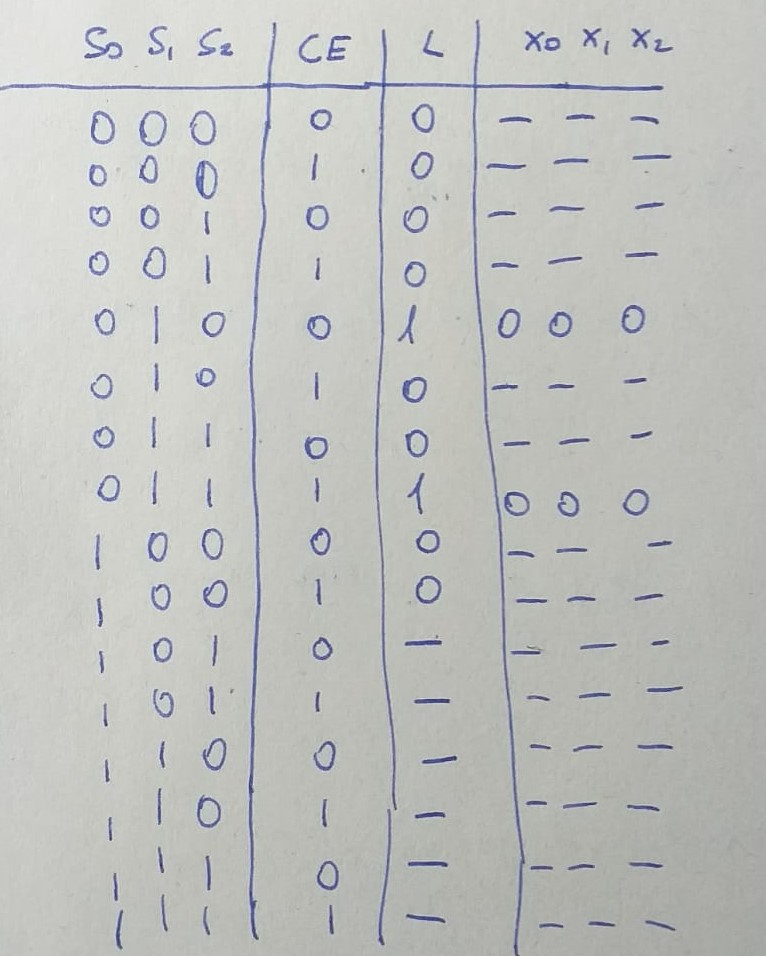 S0 S1 S2 | CE | L | X0 X1 X2
0 0 0 | 0 | 0 | - - -
0 0 0 | 1 | 0 | - - -
0 0 1 | 0 | 0 | - - -
0 0 1 | 1 | 0 | - - -
0 1 0 | 0 | 1 | 0 0 0
0 1 0 | 1 | 0 | - - -
0 1 1 | 0 | 0 | - - -
0 1 1 | 1 | 1 | 0 0 0
1 0 0 | 0 | 0 | - - -
1 0 0 | 1 | 0 | - - -
1 0 1 | 0 | - | - - -
1 0 1 | 1 | - | - - -
1 1 0 | 0 | - | - - -
1 1 0 | 1 | - | - - -
1 1 1 | 0 | - | - - -
1 1 1 | 1 | - | - - -